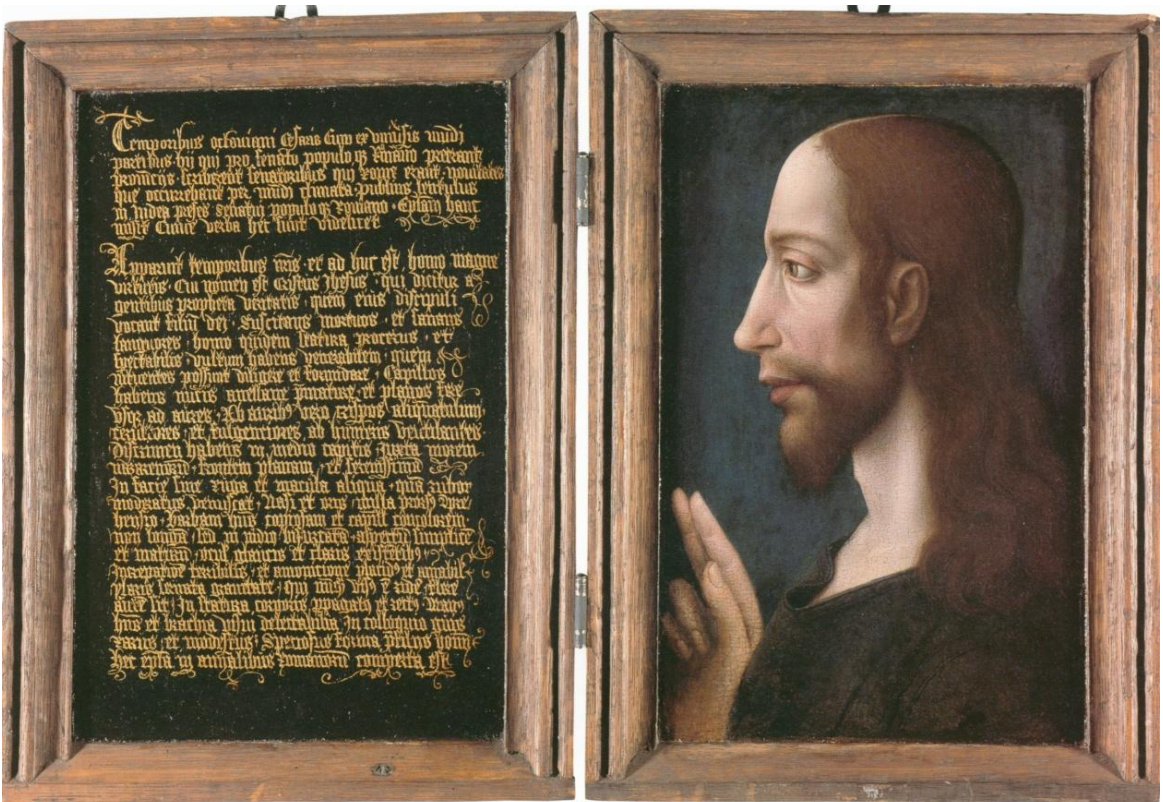 Temporibus octoviani Cesaris Cum ex vniu'sis mundi
partibus hij qui pro senatu populo q3 Romano preerant
prouincijs scriberent senatoribus qui Rome erant nouitates
que occurrebant per mundi climata publius lentulus
in iudea preses Senatui populo q3 Romano Epl'am hanc
misit Cuius verba hec sunt videlicet
Apparuit temporibus nr̄is et ad huc est homo magne
virtutis Cui nomen est Cristus Ihesus qui dicitur a
gentibus propheta veritatis quem eius discipuli
vocant filiū dei Suscitans mortuos et sanans
languores homo quidem statura procerus et
spectabilis vultum habens venerabilem quem
intuentes possunt diligere et formidare Capillos
habens nucis auellane p̄mature et planos fere
vsq3 ad aures Ab aurib9 vero crispos aliquantulum
ceruliores et fulgenciores ab humeris ventilantes
Discrimen habens in medio capitis iuxta morem
nazarenorū frontem planam et serenissimā
In facie sine ruga et macula aliqua quā rubor
moderatus venustat Nasi et oris nulla pror9 repre
hensio barbam habens copiosam et capill' concolorem
non longā sed in medio bifurcatā aspectū simplicē
et maturū ocul' glaucis et claris existētib9
Increpatione terribilis et amonitione placid9 et amabil'
hilaris seruata grauitate qui nūq' vis9 ē ridere flere
autē sic In statura corporis p̄pagat9 et rect9 man9
h̄ns et brachia visu delectabilia In colloquio grauis
rarus et modestus Speciosus forma p̄ filijs hom̄
hec ep̄la in annalibus Romanorū comperta est